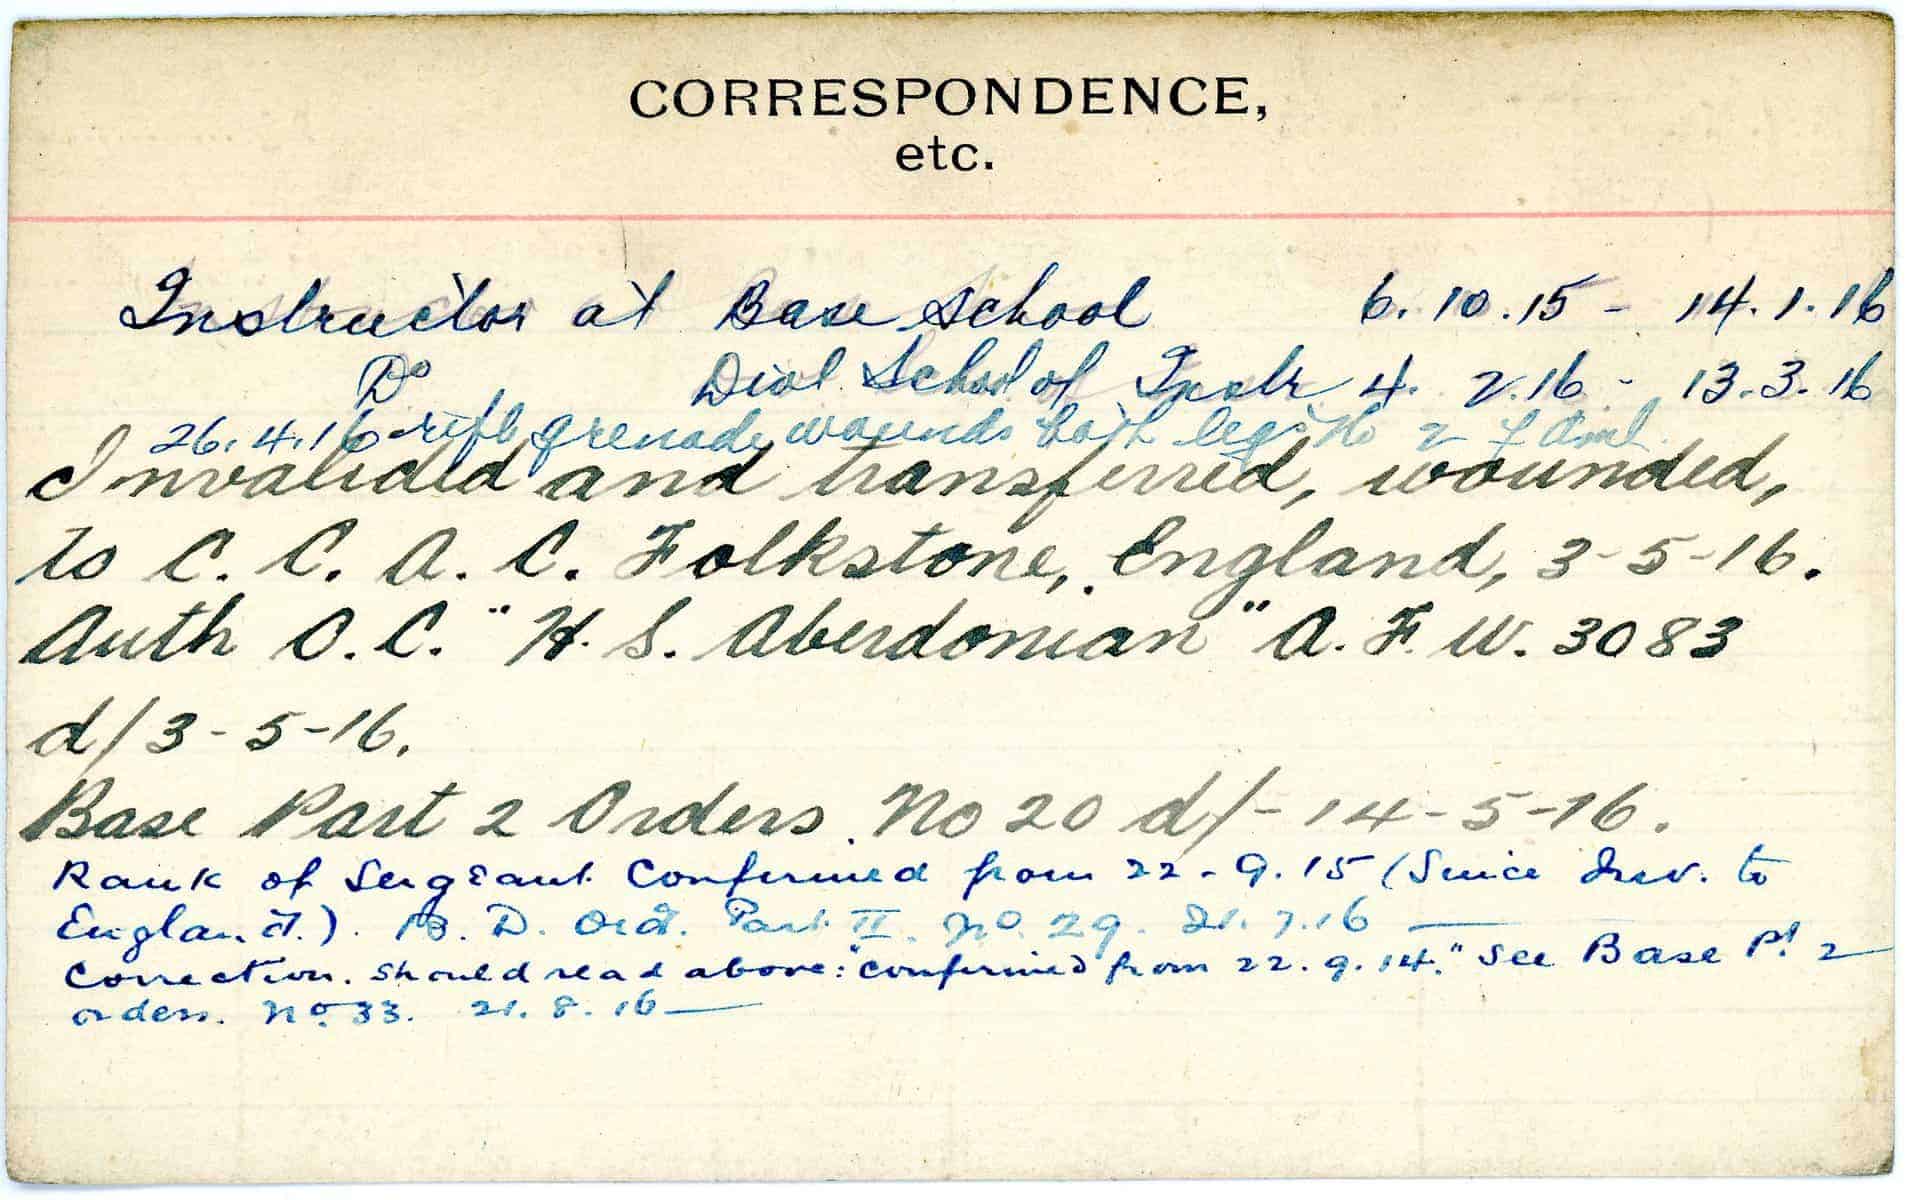 CORRESPONDENCE,
etc.
Instructor at Base School 6.10.15 - 14.1.16
Do Divl School of Instr 4. 2.16 - 13.3.16
26.4.16 rifle grenade wounds both legs No 2 F Amb.
Invalided and transferred, wounded,
to C. C. A. C. Folkstone, England, 3-5-16.
Auth O.C. "H. S. Aberdonian" A. F. W. 3083
d/3-5-16.
Base Part 2 Orders No 20 d/- 14-5-16.
Rank of Sergeant Confirmed from 22-9.15 (Since Inv. to
England.). B. D. Ord. Part II. No. 29. 21.7.16 —
Correction. Should read above: "Confirmed from 22.9.14." See Base Pt 2
orders. No. 33. 21.8.16 —